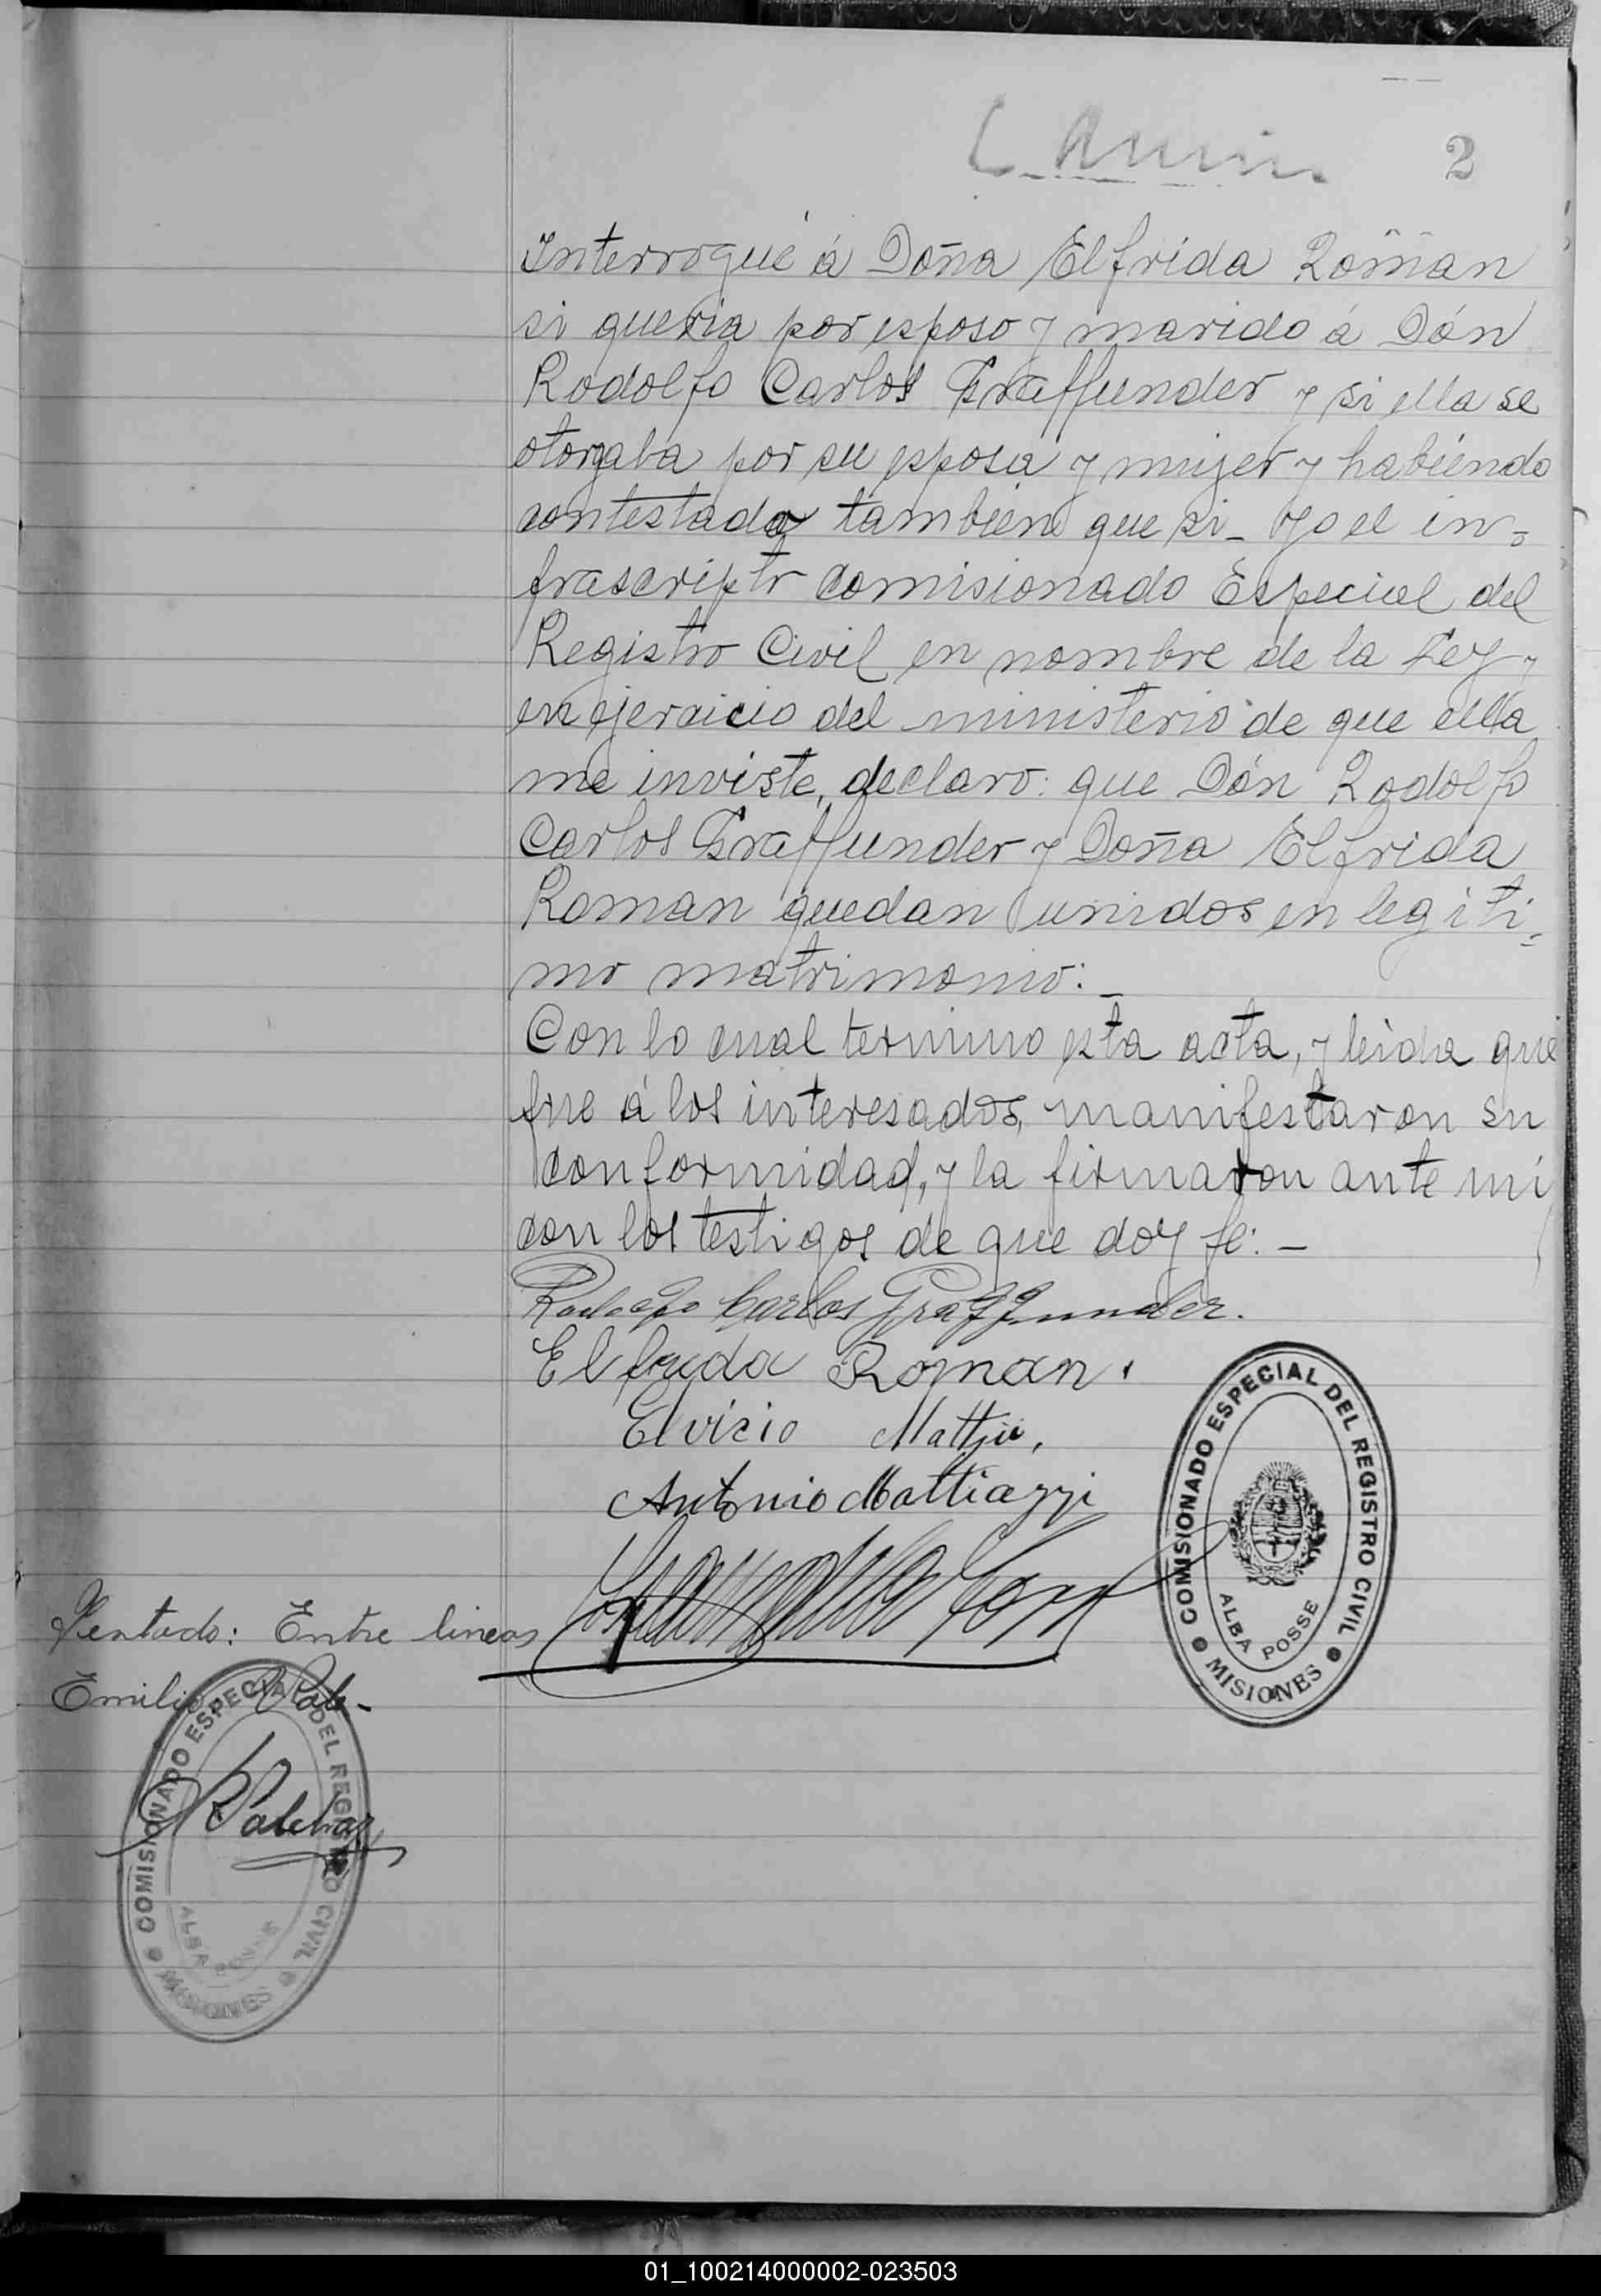 2
Interrogué á Doña Elfrida Román
si queria por esposo y marido á Dón
Rodolfo Carlos Graffunder y si ella se
otorgaba por su esposa y mujer y habiendo
contestado tambien que si_ yo el in=
frascripto comisionado Especial del
Registro Civil en nombre de la Ley y
en ejercicio del ministerio de que ella
me inviste, declaro: que Dón Rodolfo
Carlos Graffunder y Doña Elfrida
Roman quedan unidos en legiti=
mo matrimonio:_
Con lo cual termino esta acta, y leida que
fue á los interesados, manifestaron su
conformidad, y la firmaron ante mi
con los testigos de que doy fé:_
Rodolfo Carlos Graffunder.
Elfrida Roman.
Elvicio
Antonio Mattiazzi
COMISIONADO ESPECIAL DEL REGISTRO CIVIL
ALBA POSSE
MISIONES
Entre lineas
Emilio
COMISIONADO ESPECIAL DEL REGISTRO CIVIL
ALBA POSSE
MISIONES
01_100214000002-023503